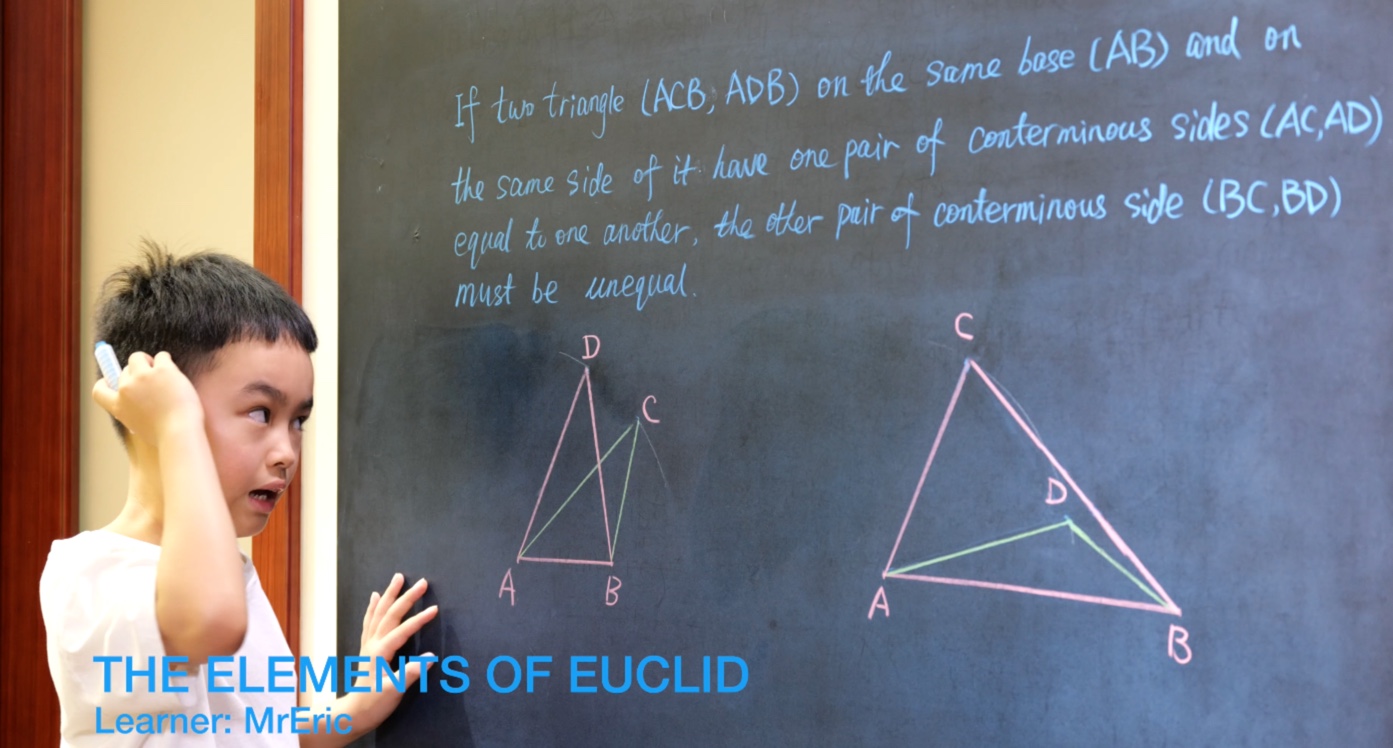 If two triangle (ACB, ADB) on the same base (AB) and on
the same side of it have one pair of conterminous sides (AC,AD)
equal to one another, the other pair of conterminous side (BC,BD)
must be unequal.
D
C
A
B
C
D
A
B
THE ELEMENTS OF EUCLID
Learner: MrEric